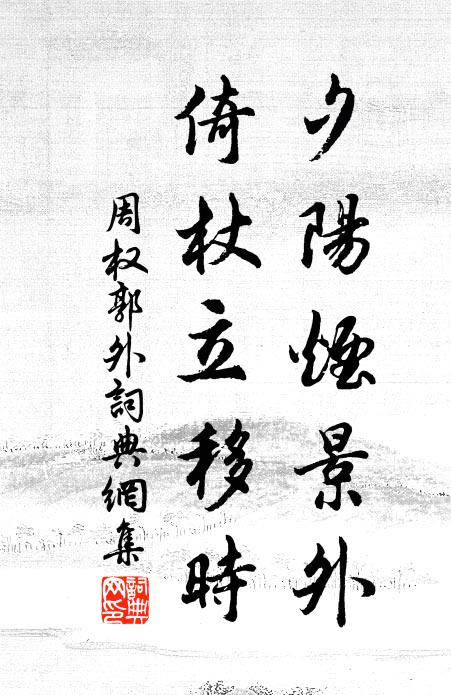 夕陽煙景外
倚杖立移時
周权郭外詞典網集
詞典网印